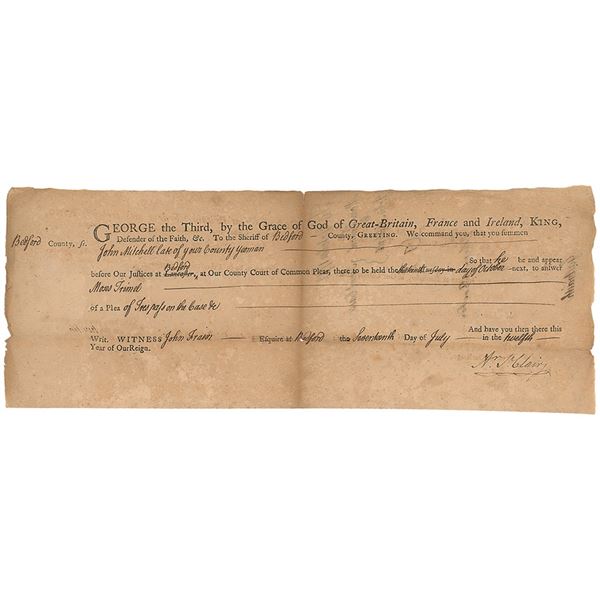 GEORGE the Third, by the Grace of God of Great-Britain, France and Ireland, KING,
Bedford County, ss. Defender of the Faith, &c. To the Sheriff of Bedford County, GREETING. We command you, that you summon
John Mitchell late of your County Yeoman
So that he be and appear
before Our Justices at Bedford Lancaster, at Our County Court of Common Pleas, there to be held the day of October next, to answer
Moses
of a Plea of Trespass on the Case &c
And have you then there this
Writ. WITNESS John Esquire at Bedford the Seventeenth Day of July in the twelfth
Year of Our Reign.
Ar. St. Clair